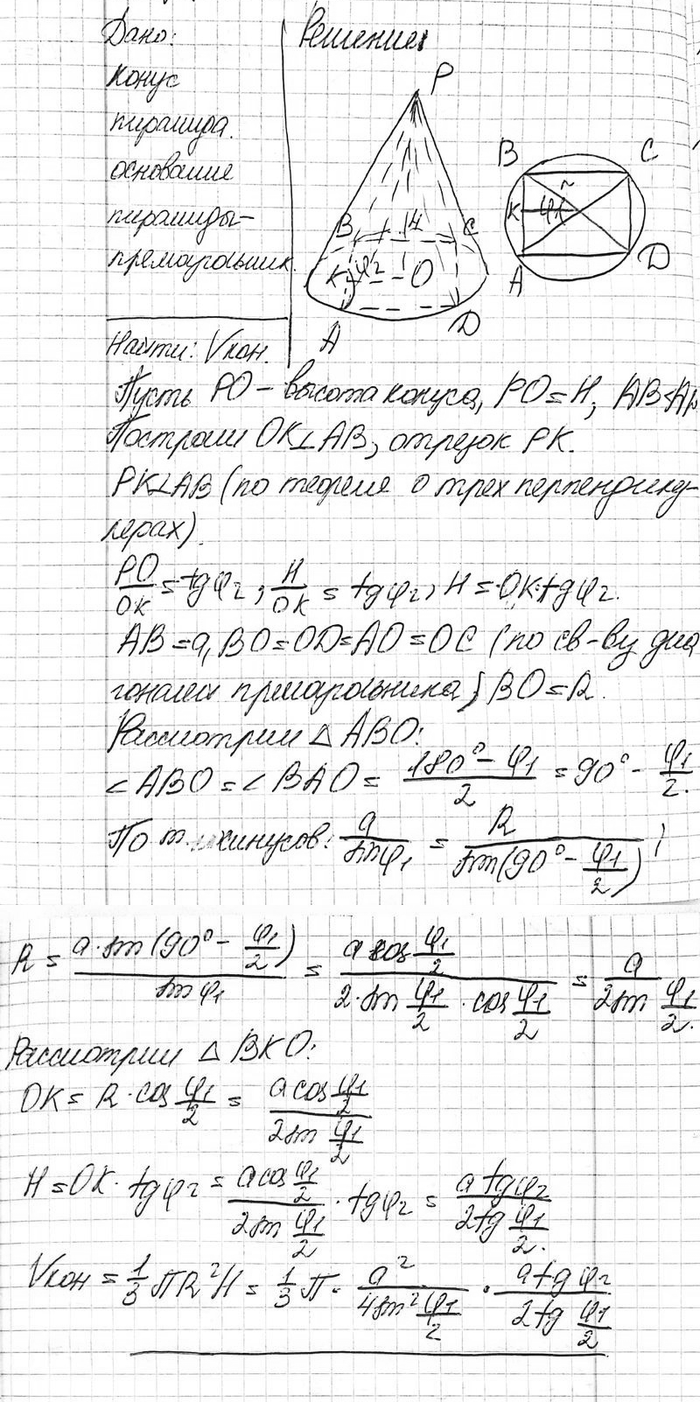 Дано:
Решение:
конус
пирамида.
основание
пирамиды-
прямоугольник.
P
B H C
K φ2 O
A D
B C
K φ1
A D
Найти: Vкон.
Пусть PO - высота конуса, PO = H, AB<
Построим OK⊥AB, отрезок PK.
PK⊥AB (по теореме о трех перпендику-
лярах).
PO/OK = tgφ2, H/OK = tgφ2, H = OK·tgφ2.
AB = a, BO=OD=AO=OC (по св-ву диа
гоналей прямоугольника) BO=R.
Рассмотрим △ABO:
∠ABO = ∠BAO = (180° - φ1)/2 = 90° - φ1/2.
По т. синусов: a/sinφ1 = R/sin(90° - φ1/2);
R = a·sin(90° - φ1/2)/sinφ1 = a cos φ1/2 / 2·sin φ1/2 · cos φ1/2 = a / 2sin φ1/2.
Рассмотрим △BKO:
OK = R·cos φ1/2 = a cos φ1/2 / 2sin φ1/2
H = OK·tgφ2 = a cos φ1/2 / 2sin φ1/2 · tgφ2 = a tgφ2 / 2tg φ1/2.
Vкон = 1/3 ПR²H = 1/3 П · a² / 4sin² φ1/2 · a tgφ2 / 2tg φ1/2